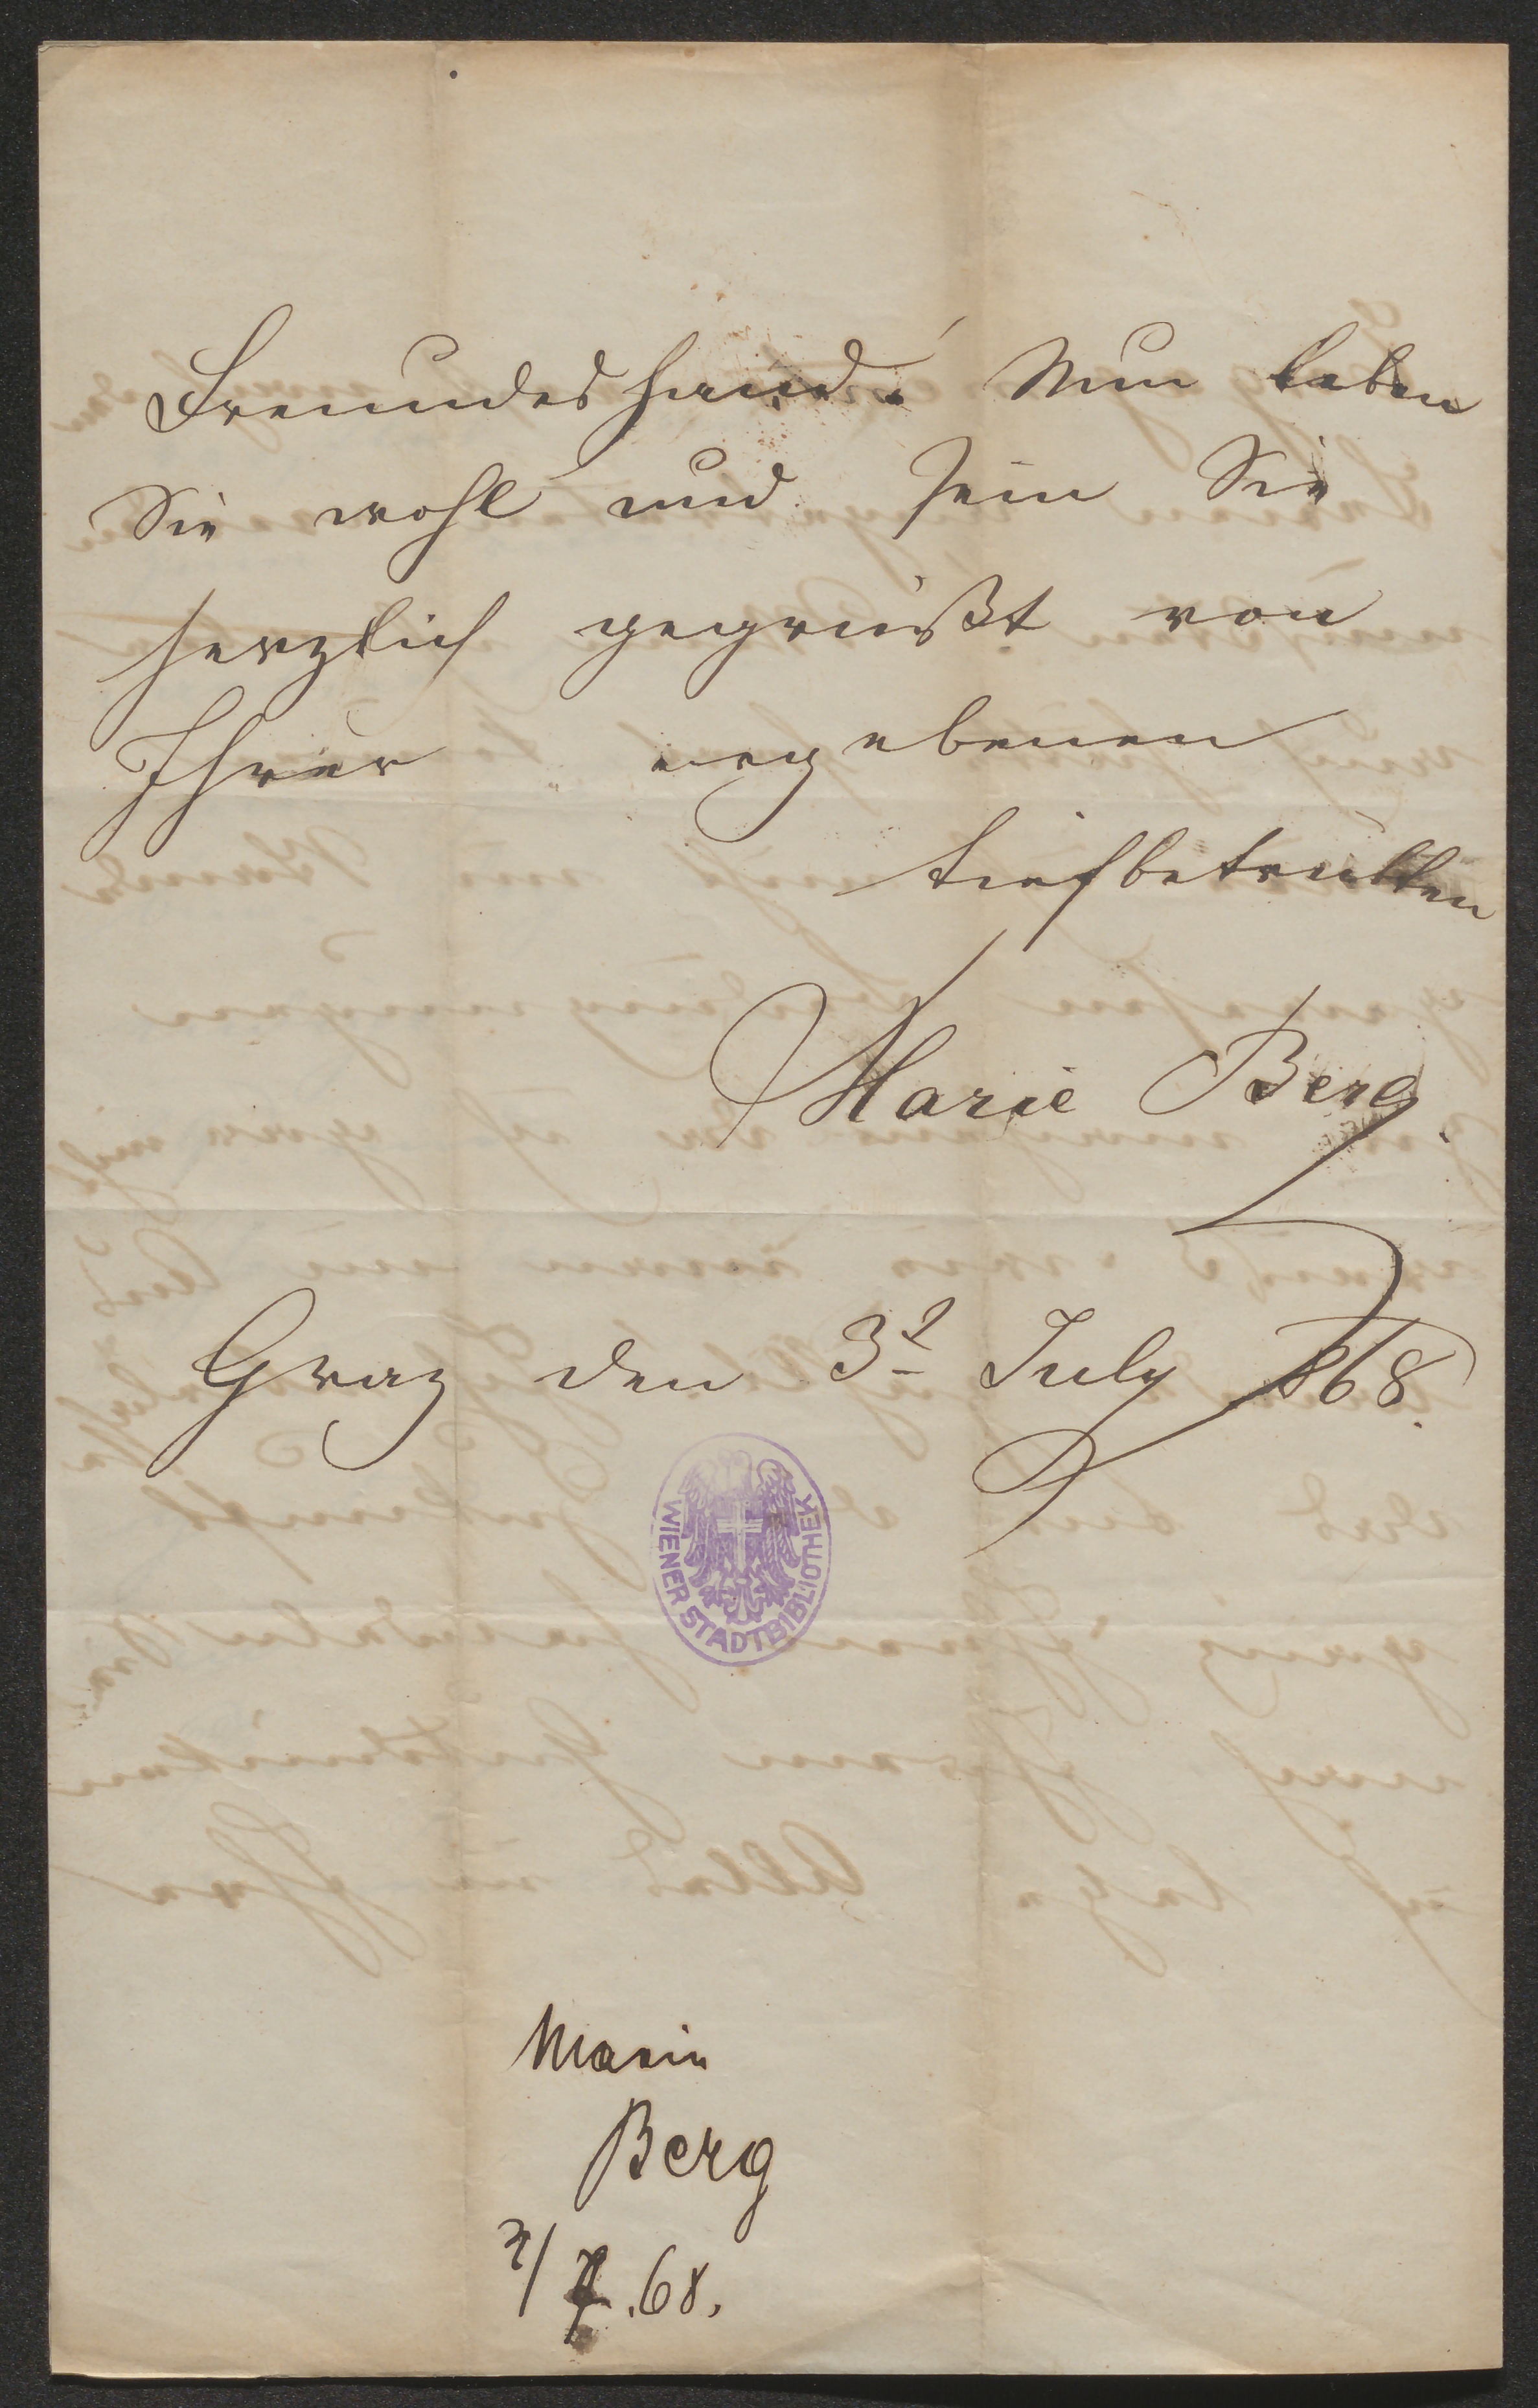 Freundeshand! Nun leben
Sie wohl und sein Sie
herzlich gegrüßt von
Ihrer ergebenen
tiefbetrübten
Marie Berg.
Graz den 3t July 868.
WIENER STADTBIBLIOTHEK
Marie
Berg
3/7.68.